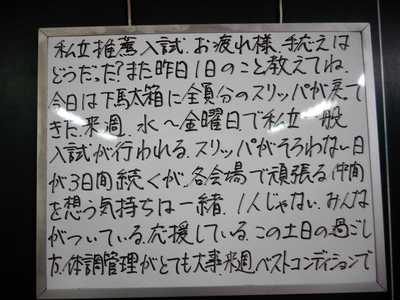 私立推薦入試.お疲れ様.手応えは
どうだった?また昨日1日のこと教えてね.
今日は下馬太箱に全員分のスリッパが戻って
きた.来週.水〜金曜日で私立一般
入試が行われる.スリッパがそろわない日
が3日間続くが.各会場で頑張る仲間
を想う気持ちは一緒.1人じゃない.みんな
がついている.応援している.この土日の過ごし
方.体調管理がとても大事.来週.ベストコンディションで